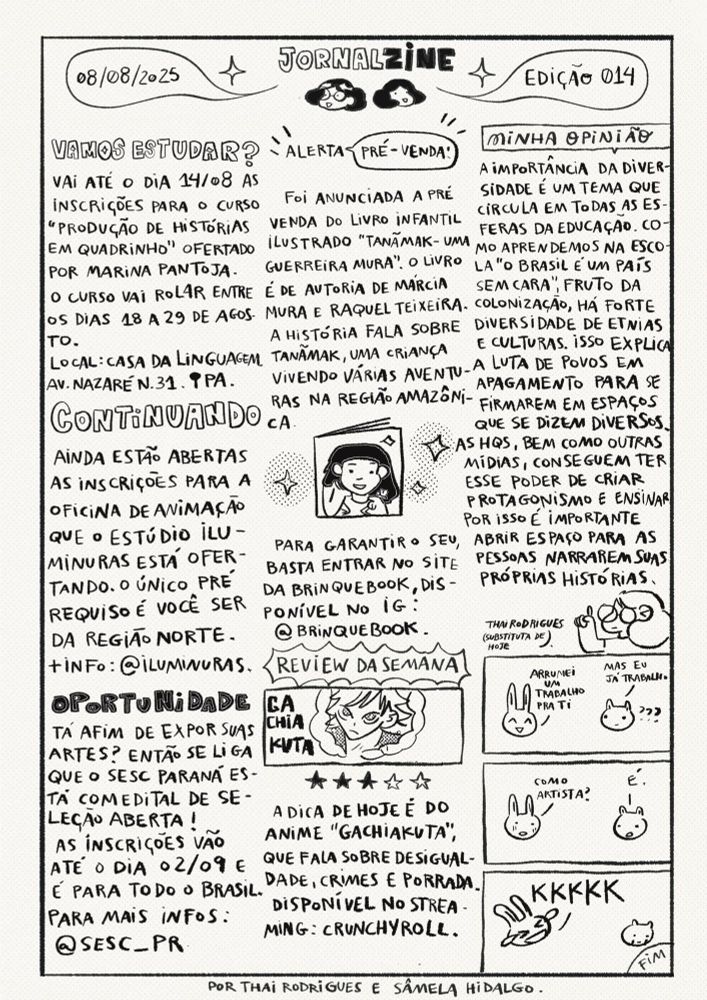 08/08/2025
JORNALZINE
EDIÇÃO 014
VAMOS ESTUDAR?
VAI ATÉ O DIA 14/08 AS
INSCRIÇÕES PARA O CURSO
"PRODUÇÃO DE HISTÓRIAS
EM QUADRINHO" OFERTADO
POR MARINA PANTOJA.
O CURSO VAI ROLAR ENTRE
OS DIAS 18 A 29 DE AGOS-
TO.
LOCAL: CASA DA LINGUAGEM
AV. NAZARÉ N.31. PA.
CONTINUANDO
AINDA ESTÃO ABERTAS
AS INSCRIÇÕES PARA A
OFICINA DE ANIMAÇÃO
QUE O ESTÚDIO ILU-
MINURAS ESTÁ OFER-
TANDO. O ÚNICO PRÉ
REQUISO É VOCÊ SER
DA REGIÃO NORTE.
+INFO: @ILUMINURAS.
OPORTUNIDADE
TÁ AFIM DE EXPOR SUAS
ARTES? ENTÃO SE LIGA
QUE O SESC PARANÁ ES-
TÁ COM EDITAL DE SE-
LEÇÃO ABERTA!
AS INSCRIÇÕES VÃO
ATÉ O DIA 02/09 E
É PARA TODO O BRASIL.
PARA MAIS INFOS:
@SESC_PR
ALERTA PRÉ-VENDA!
FOI ANUNCIADA A PRÉ
VENDA DO LIVRO INFANTIL
ILUSTRADO "TANÃMAK-UMA
GUERREIRA MURA". O LIVRO
É DE AUTORIA DE MÁRCIA
MURA E RAQUEL TEIXEIRA.
A HISTÓRIA FALA SOBRE
TANÃMAK, UMA CRIANÇA
VIVENDO VÁRIAS AVENTU-
RAS NA REGIÃO AMAZÔNI-
CA.
PARA GARANTIR O SEU,
BASTA ENTRAR NO SITE
DA BRINQUEBOOK, DIS-
PONÍVEL NO IG:
@BRINQUEBOOK.
REVIEW DA SEMANA
GA
CHIA
KUTA
A DICA DE HOJE É DO
ANIME "GACHIAKUTA",
QUE FALA SOBRE DESIGUAL-
DADE, CRIMES E PORRADA.
DISPONÍVEL NO STREA-
MING: CRUNCHYROLL.
MINHA OPINIÃO
A IMPORTÂNCIA DA DIVER-
SIDADE É UM TEMA QUE
CIRCULA EM TODAS AS ES-
FERAS DA EDUCAÇÃO. CO-
MO APRENDEMOS NA ESCO-
LA "O BRASIL É UM PAÍS
SEM CARA", FRUTO DA
COLONIZAÇÃO, HÁ FORTE
DIVERSIDADE DE ETNIAS
E CULTURAS. ISSO EXPLICA
A LUTA DE POVOS EM
APAGAMENTO PARA SE
FIRMAREM EM ESPAÇOS
QUE SE DIZEM DIVERSOS.
AS HQS, BEM COMO OUTRAS
MÍDIAS, CONSEGUEM TER
ESSE PODER DE CRIAR
PROTAGONISMO E ENSINAR
POR ISSO É IMPORTANTE
ABRIR ESPAÇO PARA AS
PESSOAS NARRAREM SUAS
PRÓPRIAS HISTÓRIAS.
THAI RODRIGUES
(SUBSTITUTA DE
HOJE
ARRUMEI
UM
TRABALHO
PRA TI
MAS EU
JÁ TRABALHO.
???
COMO
ARTISTA?
É.
KKKKK
FIM
POR THAI RODRIGUES E SÂMELA HIDALGO.